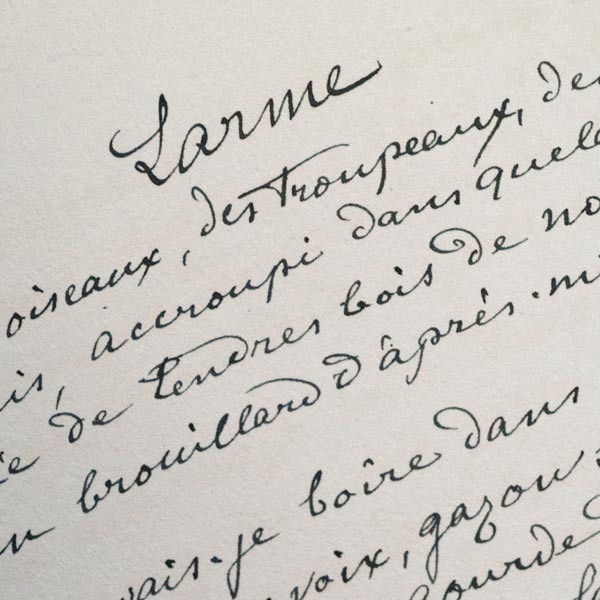 Larme
oiseaux, des troupeaux, de
is, accroupi dans quel
de tendres bois de no
brouillard d'après-mi
vais-je boire dans
voix, gazon s
gourde